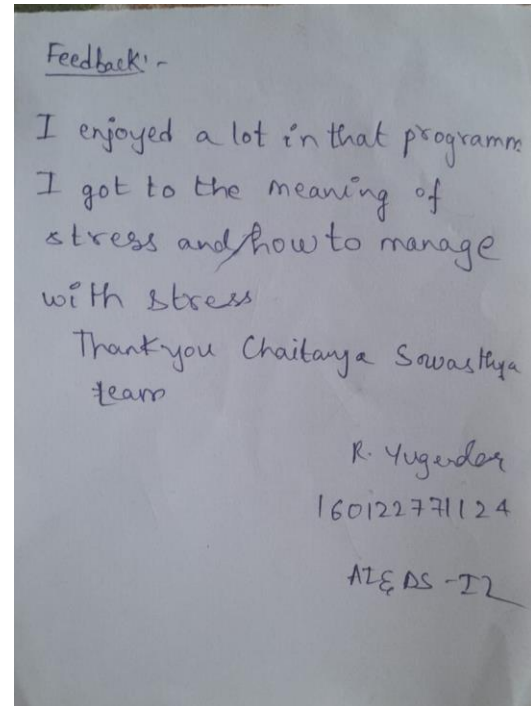 Feedback:-
I enjoyed a lot in that programm
I got to the meaning of
stress and/how to manage
with stress
Thankyou Chaitanya Sowasthya
team
R. Yugendar
160122771124
AI&DS-I2